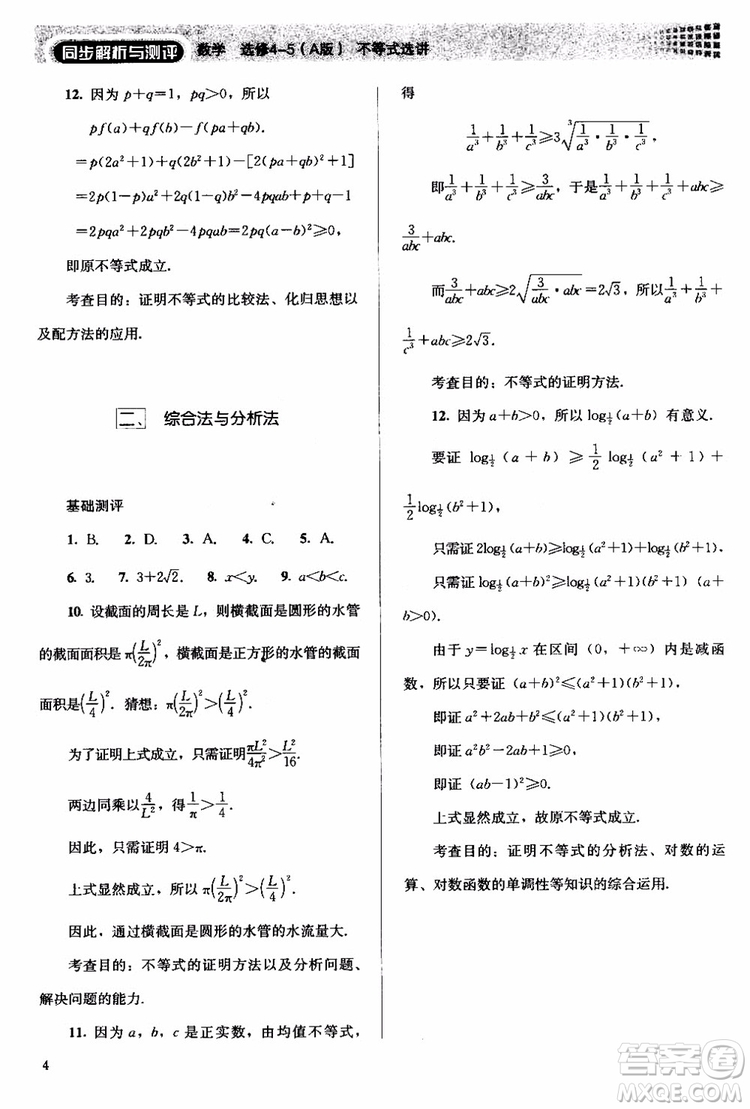 同步解析与测评 数学 选修4-5(A版) 不等式选讲
12. 因为 p+q=1, pq>0, 所以
pf(a)+qf(b)-f(pa+qb).
=p(2a²+1)+q(2b²+1)-[2(pa+qb)²+1]
=2p(1-p)a²+2q(1-q)b²-4pqab+p+q-1
=2pqa²+2pqb²-4pqab
=2pq(a-b)²≥0,
即原不等式成立.
考查目的:证明不等式的比较法、化归思想以
及配方法的应用.
二、 综合法与分析法
基础测评
1. B. 2. D. 3. A. 4. C. 5. A.
6. 3. 7. 3+2√2. 8. x<y. 9. a<b<c.
10. 设截面的周长是 L, 则横截面是圆形的水管
的截面面积是 π(L/2π)², 横截面是正方形的水管的截面
面积是(L/4)². 猜想: π(L/2π)²>(L/4)².
为了证明上式成立,只需证明πL²/4π²>L²/16.
两边同乘以 4/L², 得 1/π>1/4.
因此,只需证明 4>π.
上式显然成立,所以 π(L/2π)²>(L/4)².
因此,通过横截面是圆形的水管的水流量大.
考查目的:不等式的证明方法以及分析问题、
解决问题的能力.
11. 因为 a, b, c 是正实数,由均值不等式,
4
得
1/a³+1/b³+1/c³≥3∛(1/a³·1/b³·1/c³),
即1/a³+1/b³+1/c³≥3/abc, 于是1/a³+1/b³+1/c³+abc≥
3/abc+abc.
而3/abc+abc≥2√(3/abc·abc)=2√3, 所以1/a³+1/b³+
1/c³+abc≥2√3.
考查目的:不等式的证明方法.
12. 因为 a+b>0, 所以 log½(a+b) 有意义.
要证 log½(a+b)≥1/2 log½(a²+1)+
1/2 log½(b²+1),
只需证2log½(a+b)≥log½(a²+1)+log½(b²+1),
只需证log½(a+b)²≥log½(a²+1)(b²+1) (a+
b>0).
由于 y=log½x 在区间(0, +∞)内是减函
数,所以只要证 (a+b)²≤(a²+1)(b²+1),
即证 a²+2ab+b²≤a²b²+a²+b²+1,
即证 a²b²-2ab+1≥0,
即证 (ab-1)²≥0,
上式显然成立,故原不等式成立.
考查目的:证明不等式的分析法、对数的运
算、对数函数的单调性等知识的综合运用.
答案圈